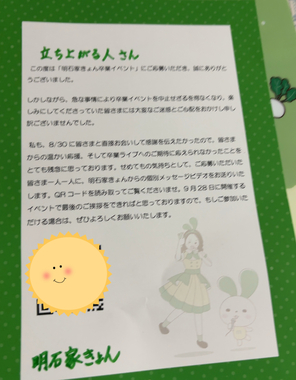 立ち上がる人さん
この度は「明石家きょん卒業イベント」にご応募いただき、誠にありがと
うございました。
しかしながら、急な事情により卒業イベントを中止せざるを得なくなり、楽
しみにしてくださっていた皆さまには大変なご迷惑とご心配をおかけし申し
訳ございませんでした。
私も、8/30 に皆さまと直接お会いして感謝を伝えたかったので、皆さま
からの温かい応援、そして卒業ライブへのご期待に応えられなかったことを
とても残念に思っております。せめてもの気持ちとして、ご応募いただいた
皆さま一人一人に、明石家きょんからの個別メッセージビデオをお送りいた
します。QRコードを読み取ってご覧くださいませ。9月28日に開催する
イベントで最後のご挨拶をできればと思っておりますので、もしご参加いた
だける場合は、ぜひよろしくお願いいたします。
明石家きょん